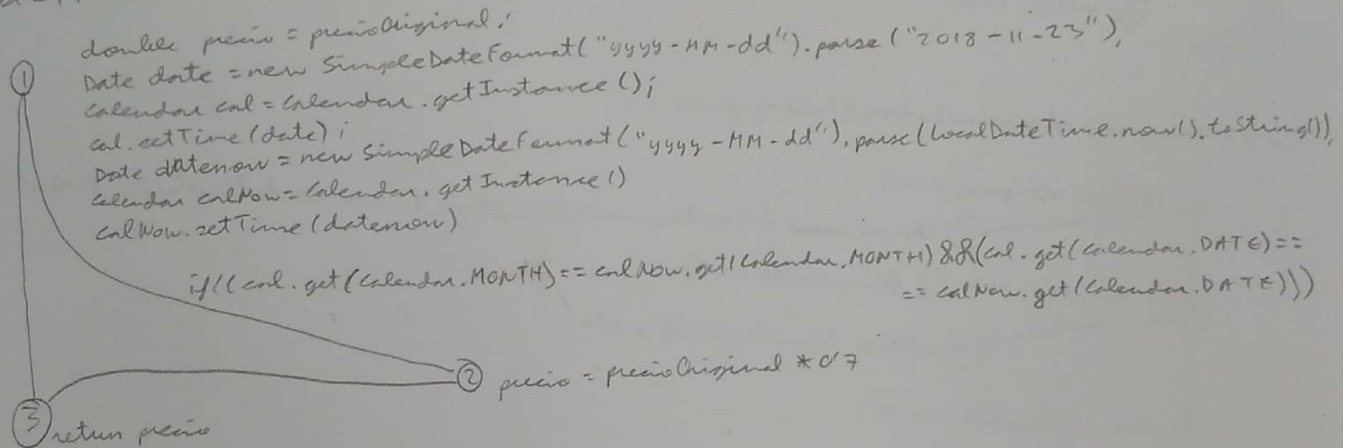 ①
double precio = precioOriginal;
Date date = new SimpleDateFormat("yyyy-MM-dd").parse("2018-11-23"),
Calendar cal = Calendar.getInstance();
cal.setTime(date);
Date datenow = new SimpleDateFormat("yyyy-MM-dd").parse(LocalDateTime.now().toString()),
Calendar calNow = Calendar.getInstance()
calNow.setTime(datenow)
if((cal.get(Calendar.MONTH) == calNow.get(Calendar.MONTH) &&(cal.get(Calendar.DATE)==
== calNow.get(Calendar.DATE)))
② precio = precioOriginal * 0'7
③ return precio